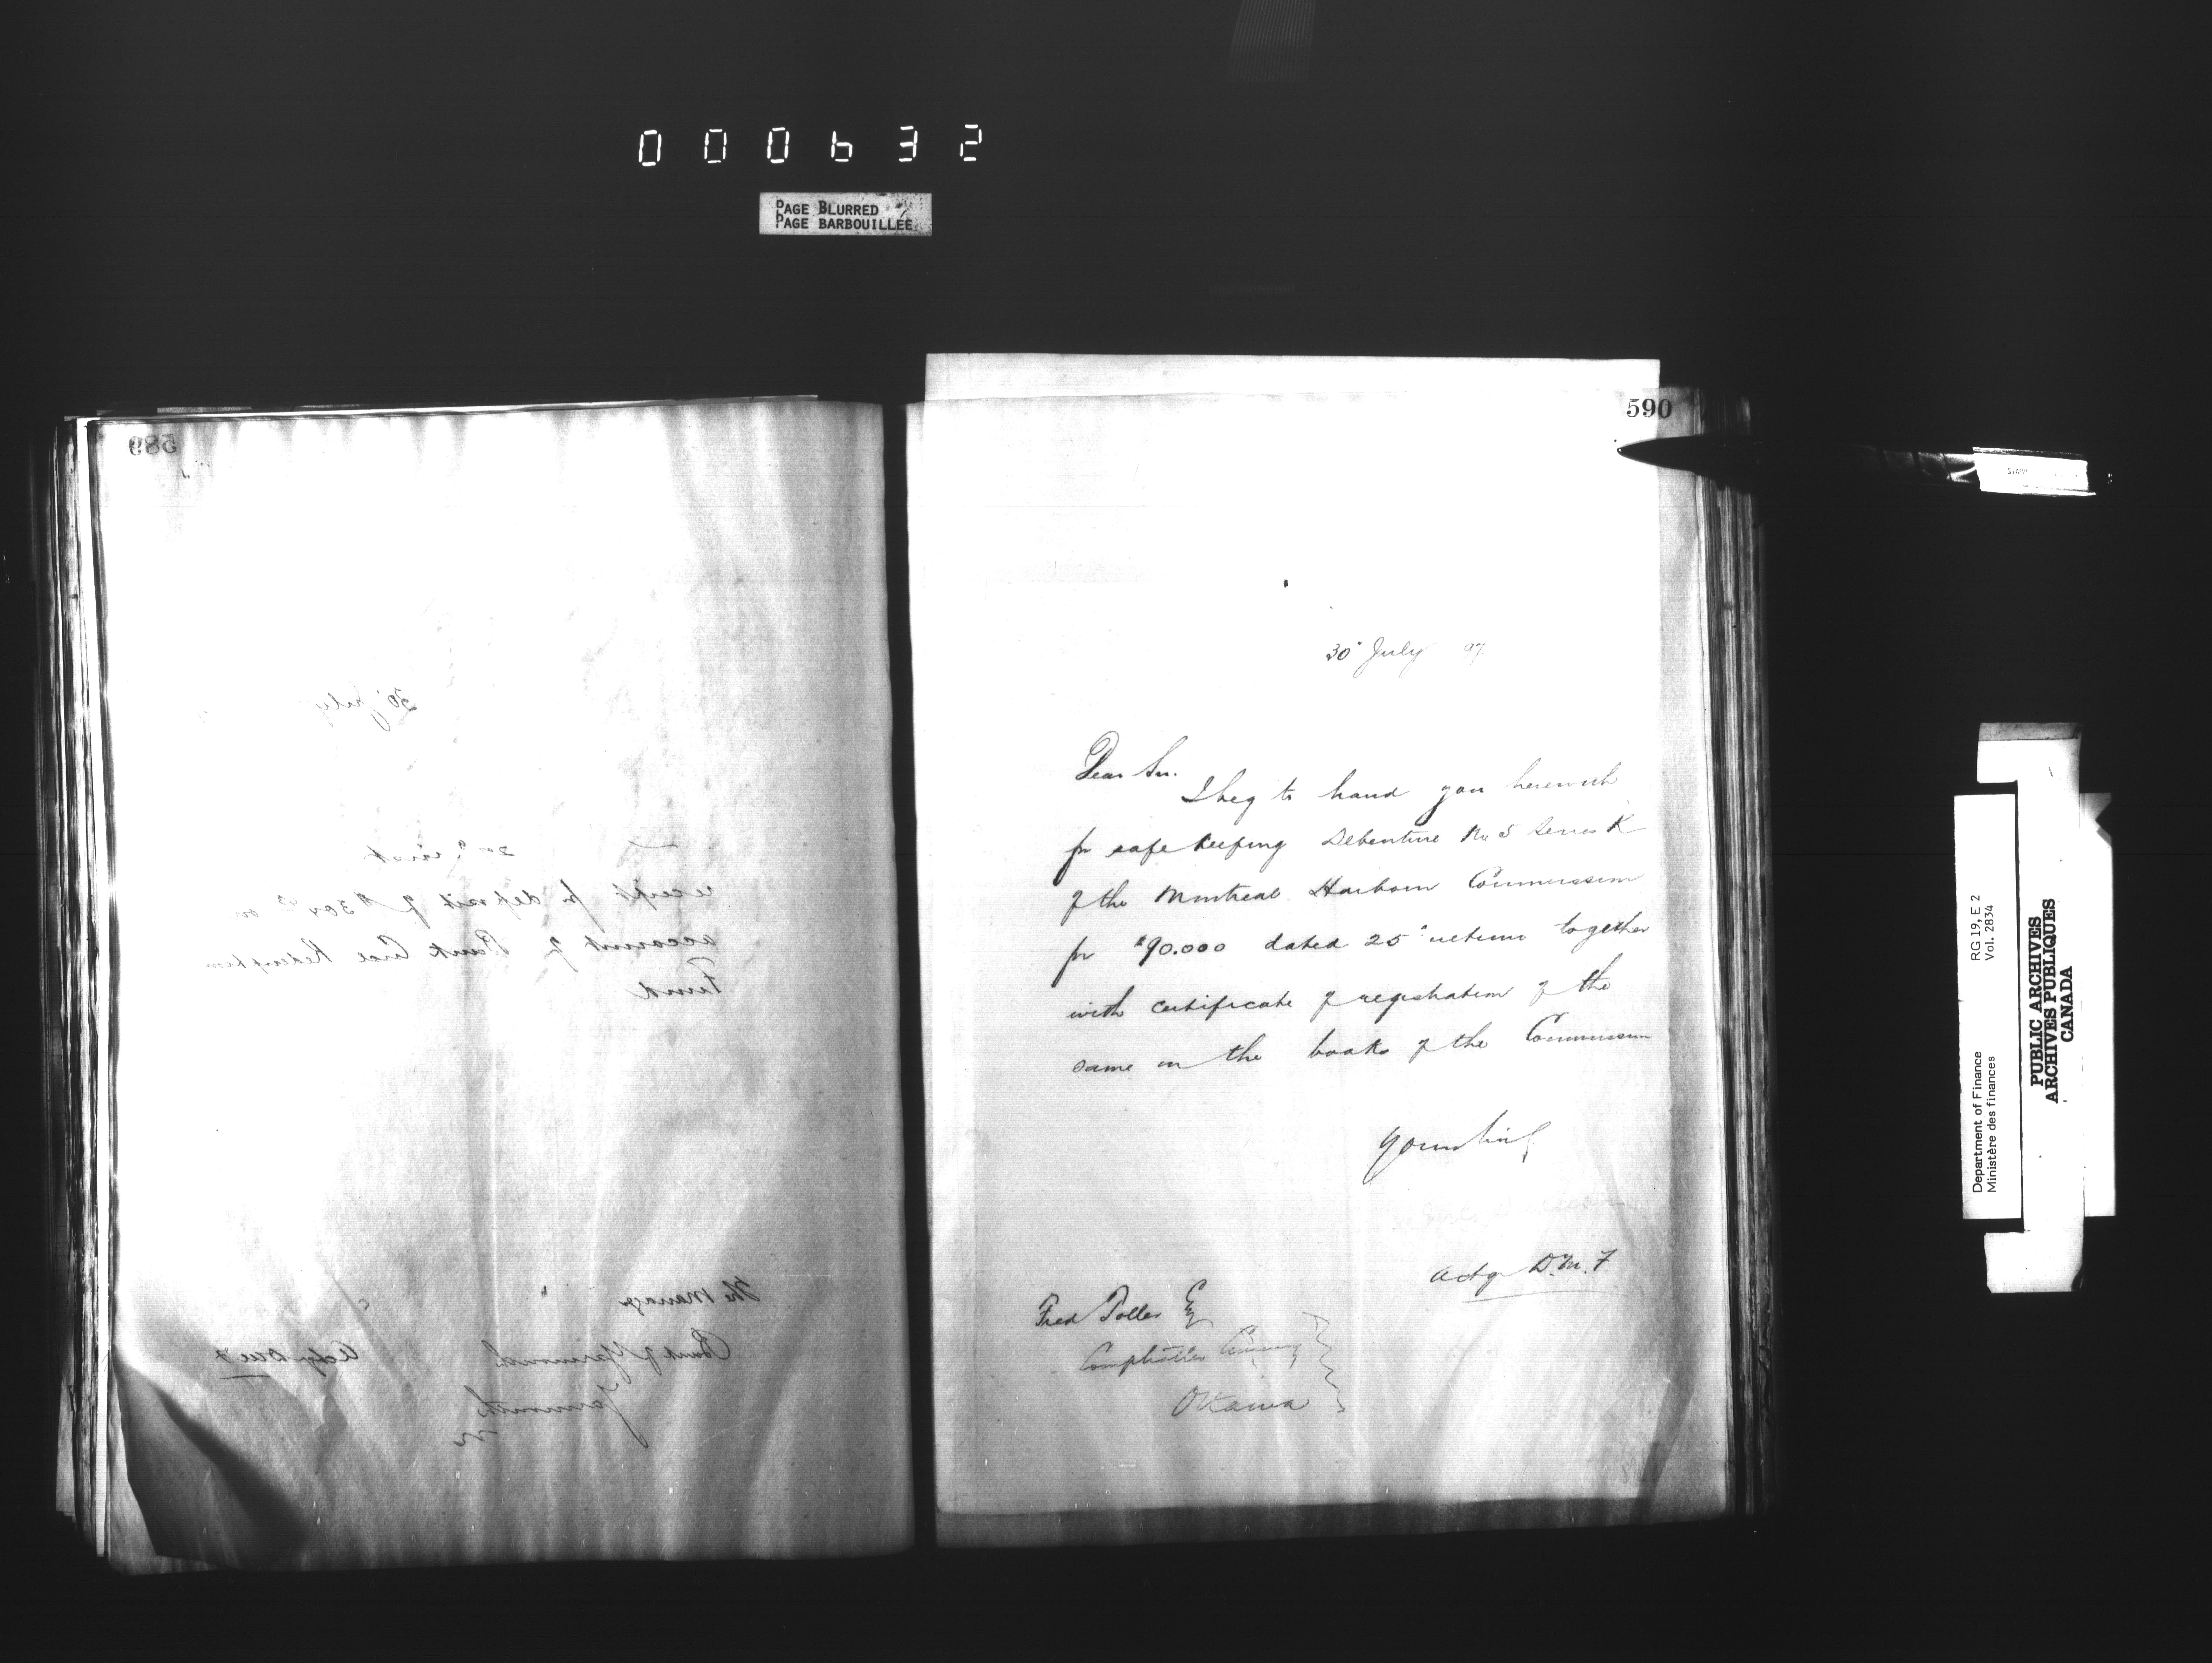 000632
PAGE BLURRED
PAGE BARBOUILLÉE
589
30 July
inst
receipt for deposit of $304 on
account of Bank Circ Redemption
Fund
The Manager
Bank of Yarmouth
Yarmouth
NS
Actg D M F
590
30" July 97
Dear Sir.
I beg to hand you herewith
for safe keeping Debenture No 5 Series K
of the Montreal Harbour Commission
for $90.000 dated 25" together
with certificate of registration of the
same in the books of the Commission
Yours truly
Actg D.M.F
Fred Toller Esq
Comptroller Currency
Ottawa
Department of Finance RG 19, E 2
Ministère des finances Vol. 2834
PUBLIC ARCHIVES
ARCHIVES PUBLIQUES
CANADA